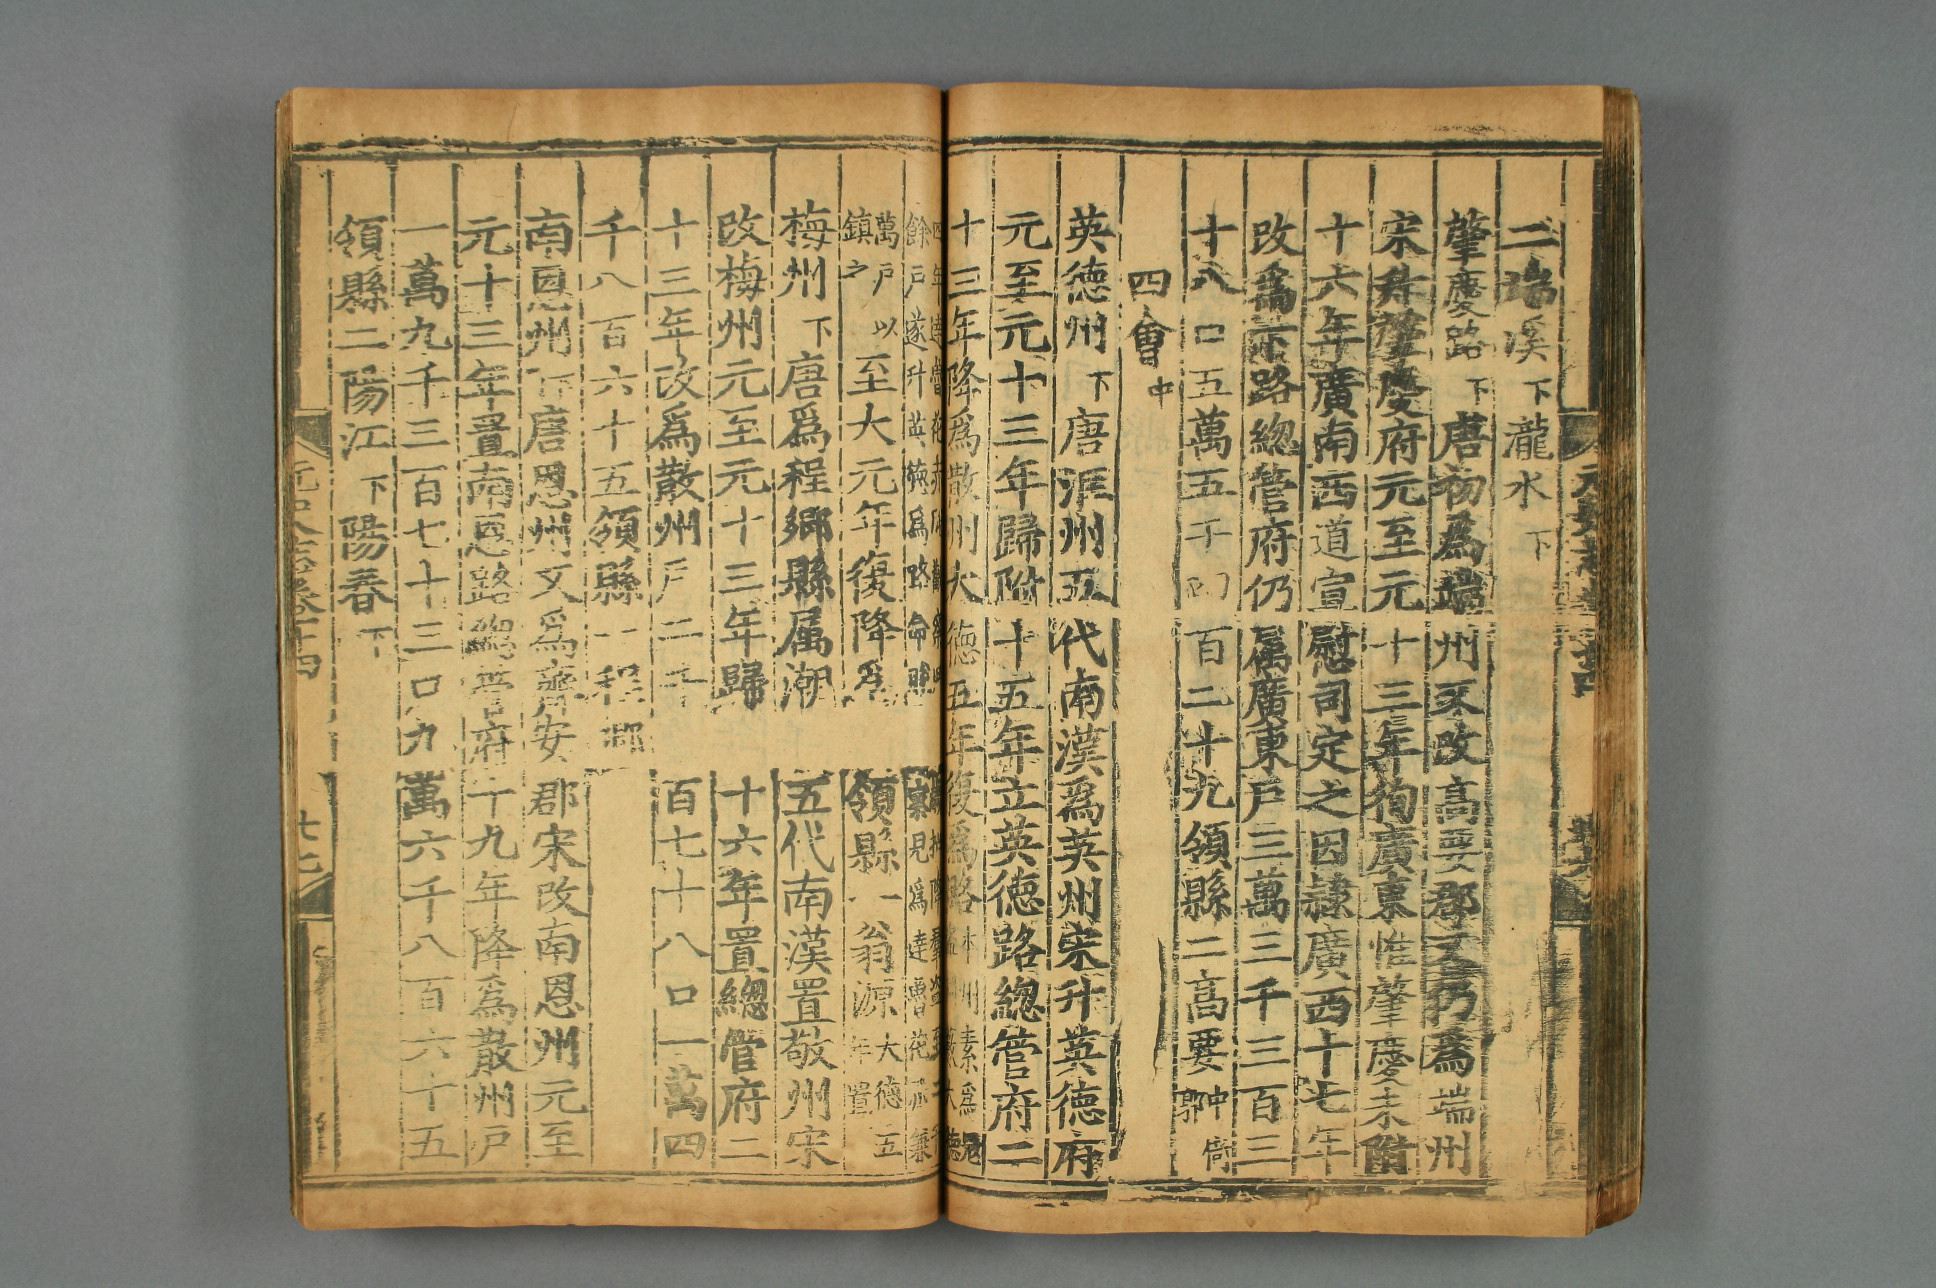 二端溪下瀧水下
肇慶路下唐初爲端州又改高要郡又仍爲端州
宋升肇慶府元至元十三年徇廣東惟肇慶未附
十六年廣南西道宣慰司定之因隸廣西十七年
改爲下路總管府仍属廣東戶三萬三千三百三
十八口五萬五千四百二十九領縣二高要中倚郭
四會中
英德州下唐洭州五代南漢爲英州宋升英德府
元至元十三年歸附十五年立英德路總管府二
十三年降爲散州大德五年復爲路
餘戶遂升英德爲路命
萬戶以鎮之至大元年復降爲
領縣一翁源大德五年置
梅州下唐爲程鄉縣属潮
五代南漢置敬州宋
改梅州元至元十三年歸
十六年置總管府二
十三年改爲散州戶二千
百七十八口一萬四
千八百六十五領縣一程鄉
南恩州下唐恩州又爲齊安郡宋改南恩州元至
元十三年置南恩路總管府十九年降爲散州戶
一萬九千三百七十三口九萬六千八百六十五
領縣二陽江下陽春下
十七